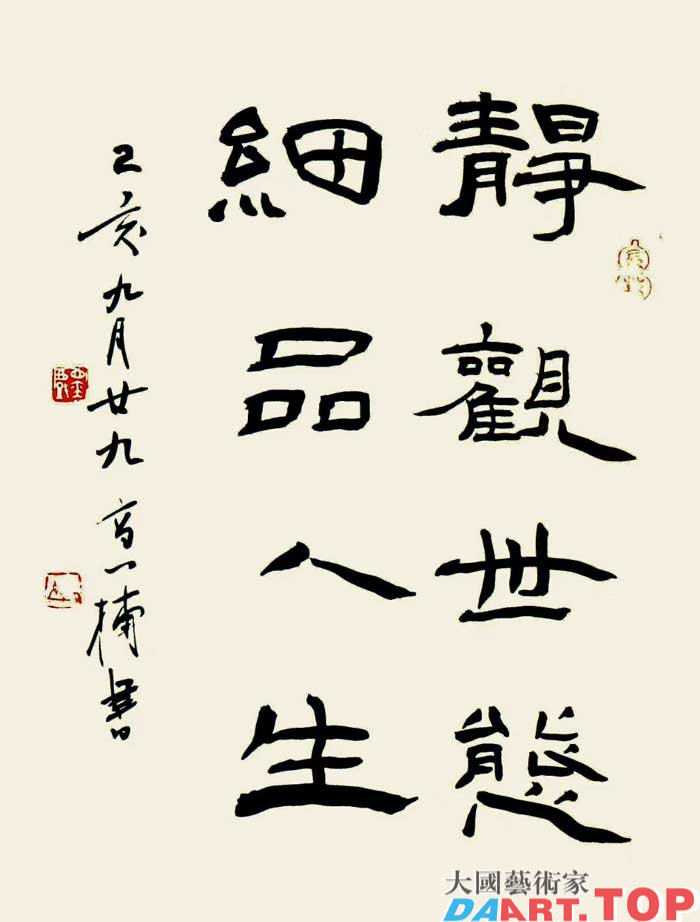 靜觀世態
細品人生
己亥九月廿九 高一楠書
大國藝術家
DAART.TOP